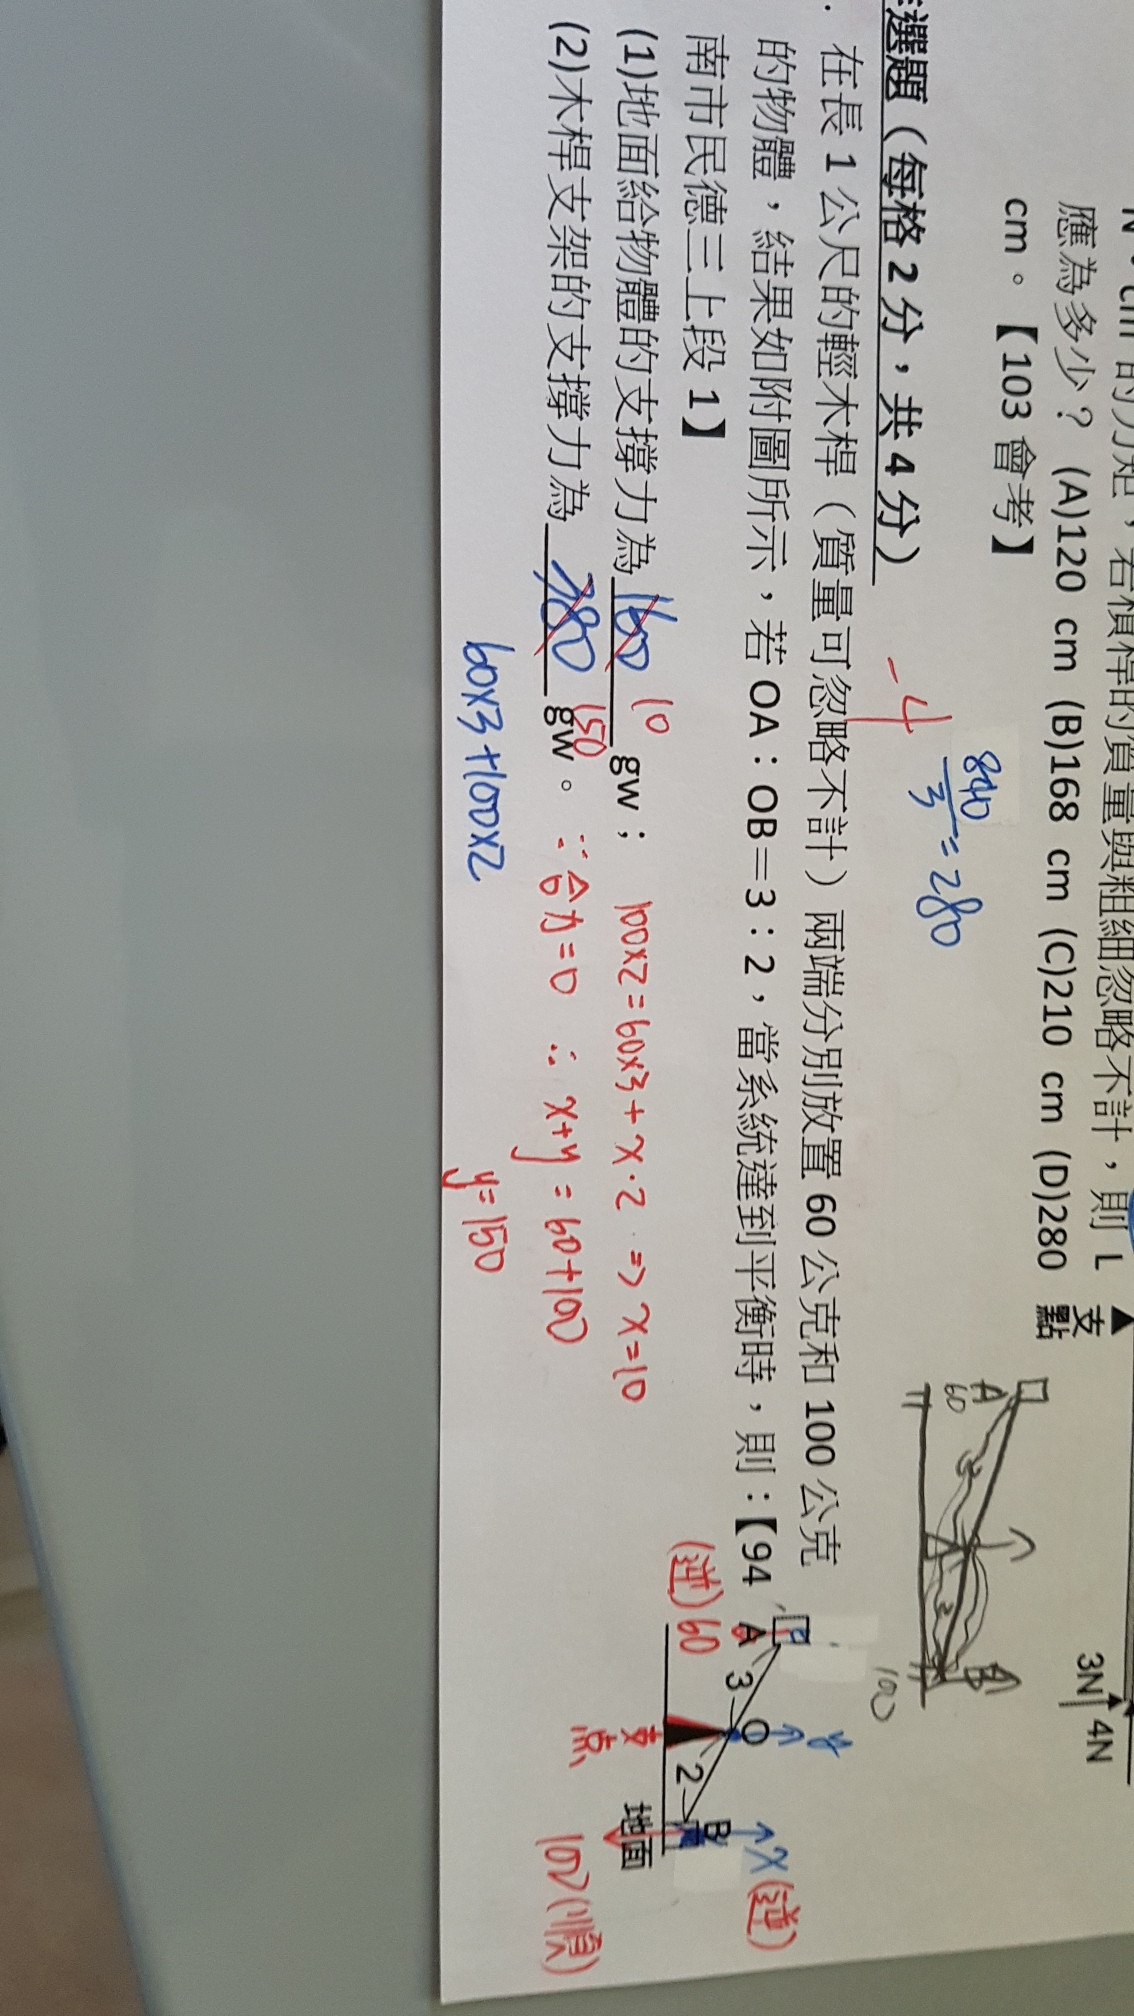 應為多少？ (A)120 cm (B)168 cm (C)210 cm (D)280
cm。【103 會考】
支點
3N 4N
840/3 = 280
A 60
3 2
B
100
選題（每格 2 分，共 4 分）
-4
在長 1 公尺的輕木桿（質量可忽略不計）兩端分別放置 60 公克和 100 公克
的物體，結果如附圖所示，若 OA：OB＝3：2，當系統達到平衡時，則：【94
南市民德三上段 1】
(1)地面給物體的支撐力為 160 10 gw；
100x2=60x3+x·2 => x=10
(2)木桿支架的支撐力為 780 150 gw。
∵合力=0 ∴ x+y=60+100
y=150
60x3+100x2
A 3 O 2 B
y
x (逆)
(逆) 60
支点
地面
100 (順)